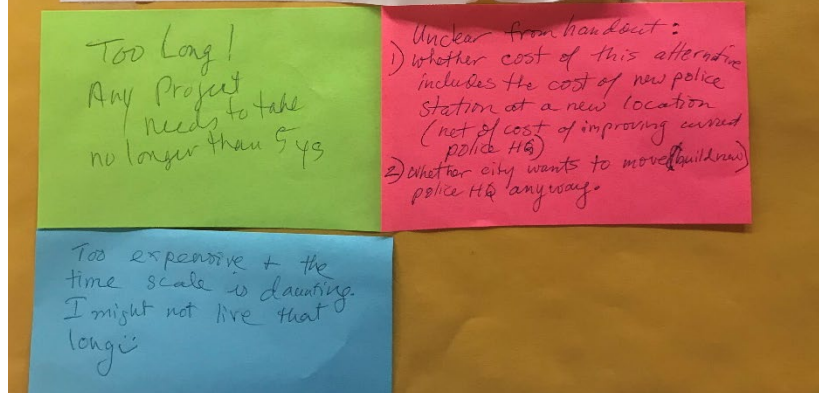 Too Long!
Any Project
needs to take
no longer than 5 ys
Unclear from handout:
1) whether cost of this alternative
includes the cost of new police
station at a new location
(net of cost of improving current
police HQ)
2) whether city wants to move (build new)
police HQ anyway.
Too expensive + the
time scale is daunting.
I might not live that
long :)